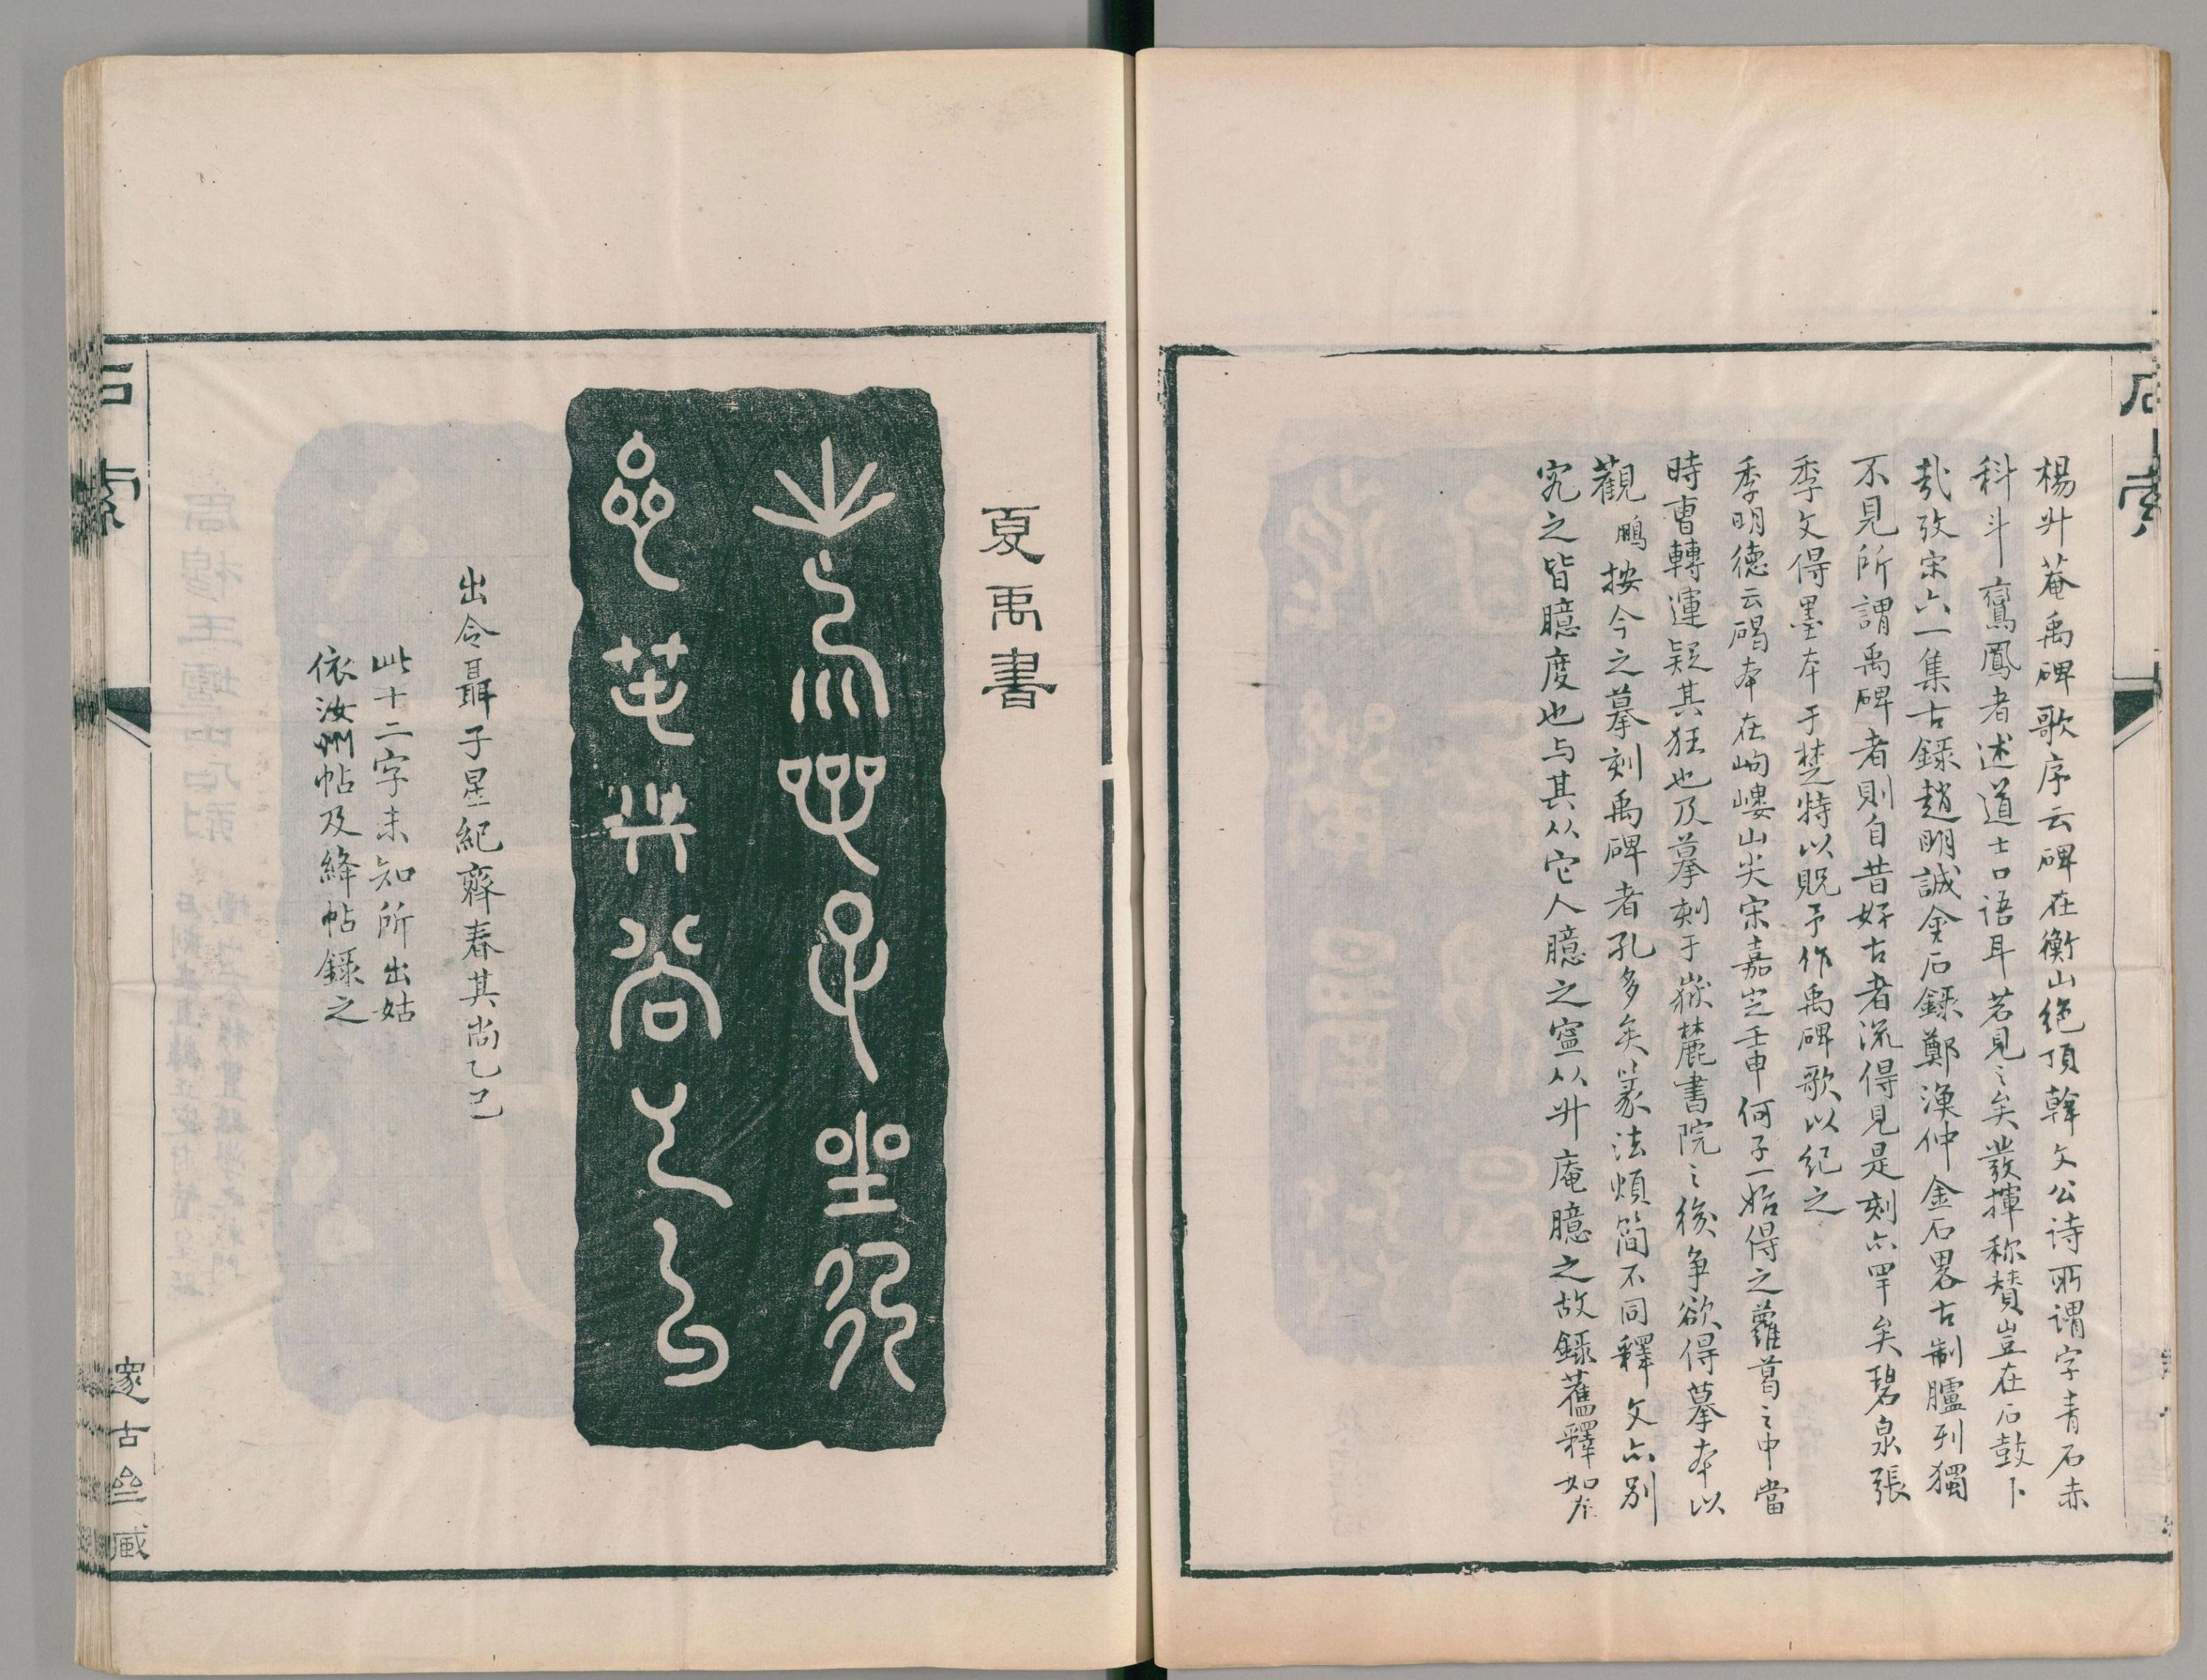 石索
楊升菴禹碑歌序云碑在衡山絶頂韓文公诗所谓字青石赤
科斗鸞鳳者述道士口语耳若見之矣發揮称賛豈在石鼓下
㦲攷宋六一集古錄趙明誠金石錄鄭漁仲金石畧古制臚列獨
不見所謂禹碑者則自昔好古者流得見是刻亦罕矣碧泉張
季文得墨本于楚特以貺予作禹碑歌以紀之
季明德云碣本在岣嶁山尖宋嘉定壬申何子一始得之蘿葛之中當
時曺轉運疑其狂也及摹刻于嶽麓書院之後争欲得摹本以
觀 鵬按今之摹刻禹碑者孔多矣篆法煩簡不同釋文亦别
究之皆臆度也与其从它人臆之寧从升庵臆之故錄舊釋如左
夏禹書
出令聶子星紀齊春其尚乙己
此十二字未知所出姑
依汝州帖及絳帖錄之
石索
邃古亝藏